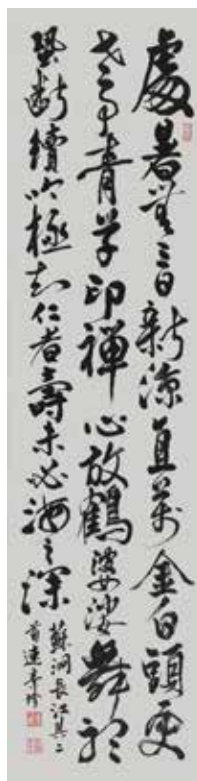 處暑無三日新涼直萬金白頭更
世事青草印禪心放鶴婆娑舞聽
蛩斷續吟極知仁者壽未必海之深
蘇泂長江其二